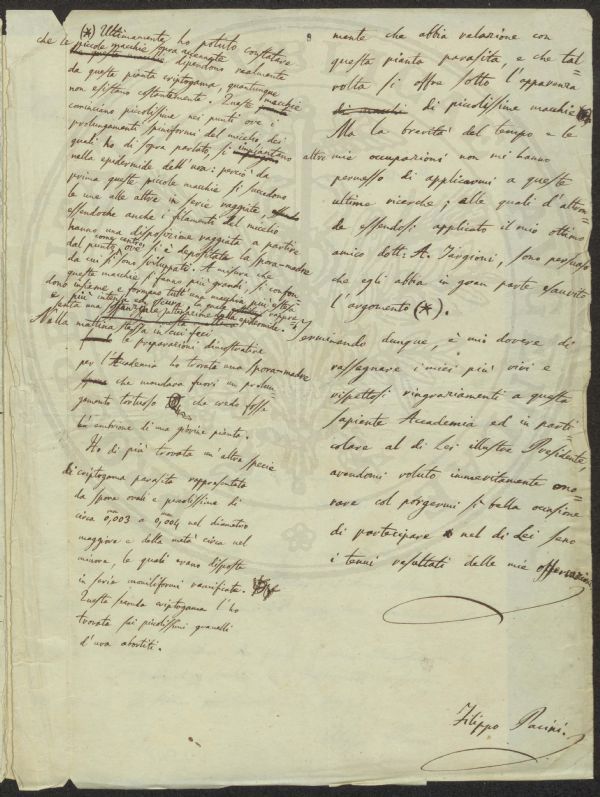 (*) Ultimamente ho potuto constatare
che le piccole macchie sopra accennate
dipendono realmente
da questa pianta criptogama, quantunque
non esistano costantemente. Queste macchie
cominciano piccolissime nei punti ove i
prolungamenti spiniformi del micelio, dei
quali ho di sopra parlato, si impiantano
nella epidermide dell'uva: perciò da
prima queste piccole macchie si vedono
le une alle altre in serie raggiate,
essendoché anche i filamenti del micelio
hanno una disposizione raggiata a partire
dal punto ove si è depositata la spora-madre
da cui si sono sviluppati. A misura che
queste macchie si fanno più grandi, si confon-
dono insieme, e formano tutte una macchia più estesa
e più intensa ed oscura, la quale
Nella mattina stessa in cui feci
le preparazioni dimostrative
per l'Accademia ho trovato una spora-madre
che mandava fuori un prolun-
gamento tortuoso che credo fosse
l'embrione di una giovine pianta.
Ho di più trovata un'altra specie
di criptogama parasita rappresentata
da spore ovali e piccolissime di
circa 0,003 a 0,004 nel diametro
maggiore e della metà circa nel
minore, le quali erano disposte
in serie moniliformi ramificate.
Questa seconda criptogama l'ho
trovata sui piccolissimi granelli
d'uva abortiti.
mente che abbia relazione con
questa pianta parasita, e che tal=
volta si offre sotto l'apparenza
di piccolissime macchie
Ma la brevità del tempo e le
altre mie occupazioni non mi hanno
permesso di applicarmi a queste
ultime ricerche; alle quali d'altron=
de essendosi applicato il mio ottimo
amico dott: A. Targioni, sono persuaso
che egli abbia in gran parte esaurito
l'argomento (*).
Terminando dunque, è mio dovere di
rassegnare i miei più vivi e
rispettosi ringraziamenti a questa
sapiente Accademia ed in parti=
colare al di Lei illustre Presidente,
avendomi voluto immeritamente ono=
rare col porgermi sì bella occasione
di partecipare nel di Lei seno
i tenui resultati delle mie osservazioni
Filippo Pacini.